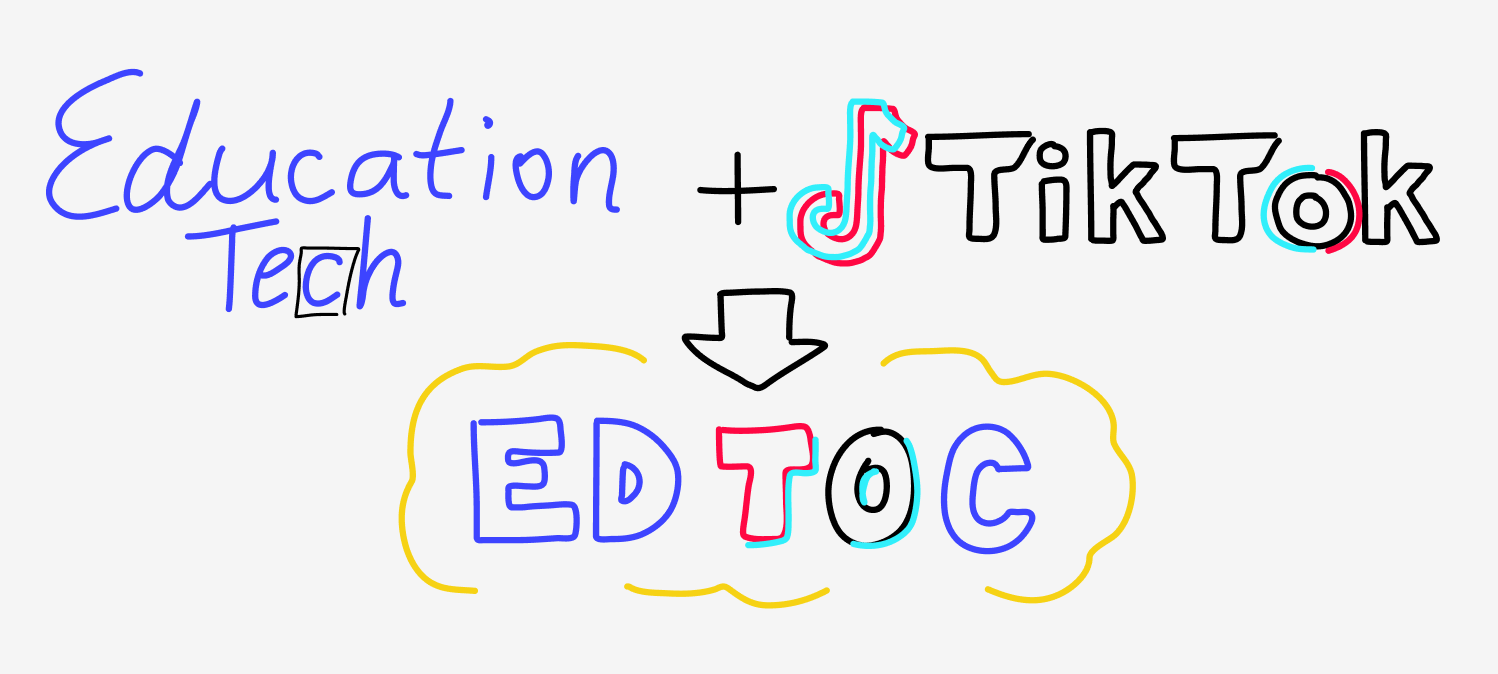 Education
Tech
+ TikTok
ED TOC